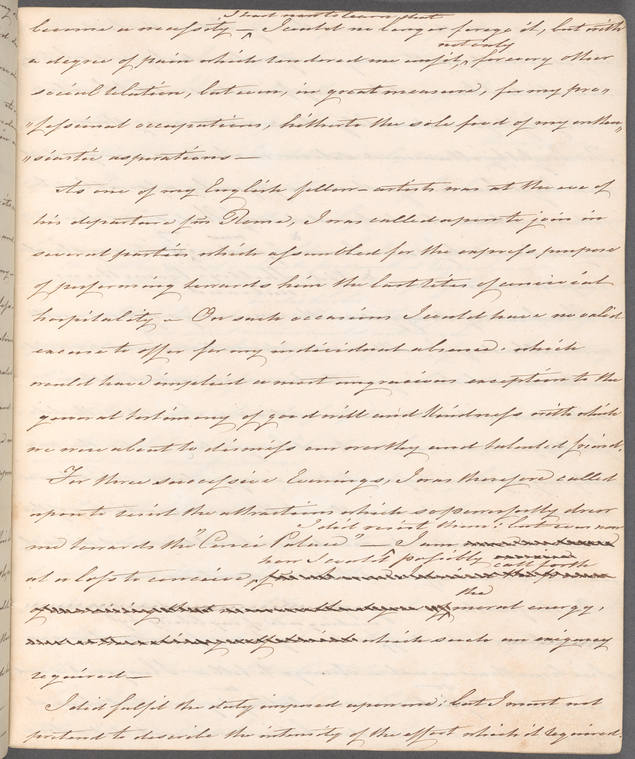 I had now to learn that
become a necessity ^ I could no longer forego it, but with
not only
a degree of pain which rendered me unfit, ^ for every other
social relation, but even, in great measure, for my pro"
"fessional occupations, hitherto the sole food of my enthu"
"siastic aspirations —
As one of my English fellow-artists was at the eve of
his departure for Rome, I was called upon to join in
several parties which assembled for the express purpose
of performing towards him the last rites of convivial
hospitality — On such occasions I could have no valid
excuse to offer for my individual absence: which
would have implied a most ungracious exception to the
general testimony of good will and kindness with which
we were about to dismiss our worthy and talented friend.
For three successive Evenings, I was therefore called
upon to resist the attraction which so powerfully drew
I did resist them: but even now
me towards the "Palace" — I am
how I could ^ possibly call forth
at a loss to conceive,
the
moral energy,
which such an exigency
required —
I did fulfil the duty imposed upon me; but I must not
pretend to describe the intensity of the effort which it required.